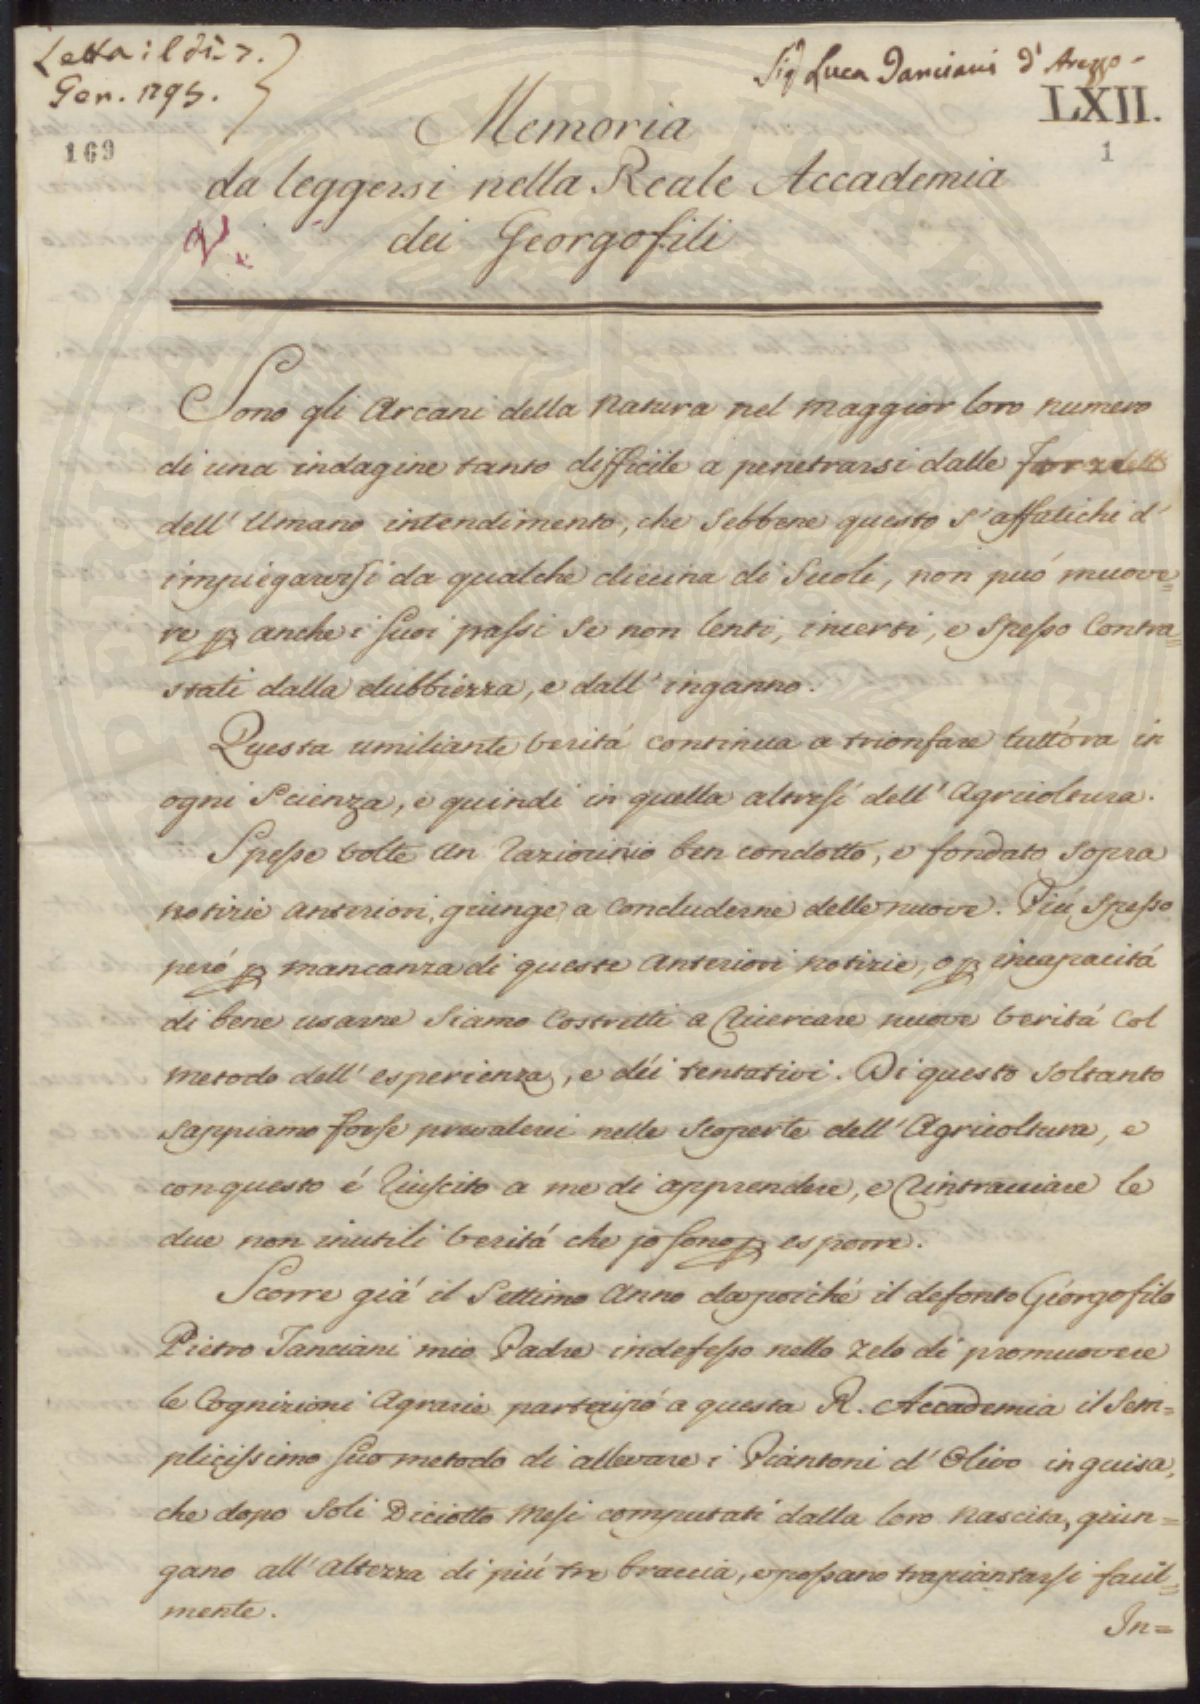 Letta il dì 7.
Gen. 1795.
Sig Luca Tanciani d' Arezzo.
LXII.
169
1
Memoria
da leggersi nella Reale Accademia
dei Georgofili
Sono gli Arcani della Natura nel maggior loro numero
di una indagine tanto difficile a penetrarsi dalle Forze
dell' Umano intendimento, che sebbene questo s' affatichi d'
impiegarvisi da qualche diecina di Secoli, non può muove=
re p anche i suoi passi se non lenti, incerti, e spesso Contra=
stati dalla dubbiezza, e dall' inganno.
Questa umiliante verità continua a trionfare tutt'ora in
ogni Scienza, e quindi in quella altresì dell' Agricoltura.
Spesse volte un raziocinio ben condotto, e fondato sopra
notizie anteriori, giunge a concluderne delle nuove. Più spesso
però p mancanza di queste anteriori notizie, o p incapacità
di bene usarne siamo Costretti a ricercare nuove verità Col
metodo dell' esperienza, e déi tentativi. Di questo soltanto
sappiamo forse prevalerci nelle scoperte dell' Agricoltura, e
con questo é riuscito a me di apprendere, e rintracciare le
due non inutili verità che jo sono p esporre.
Scorre già il Settimo Anno dapoiché il defonto Géorgofilo
Pietro Tanciani mio Padre indefesso nello zelo di promuovere
le Cognizioni Agrarie partecipò a questa R. Accademia il Sem=
plicissimo suo metodo di allevare i Piantoni d' Olivo in guisa,
che dopo soli Diciotto Mesi computati dalla loro Nascita, giun=
gano all' altezza di più tre braccia, e possano trapiantarsi facil=
mente.
In=